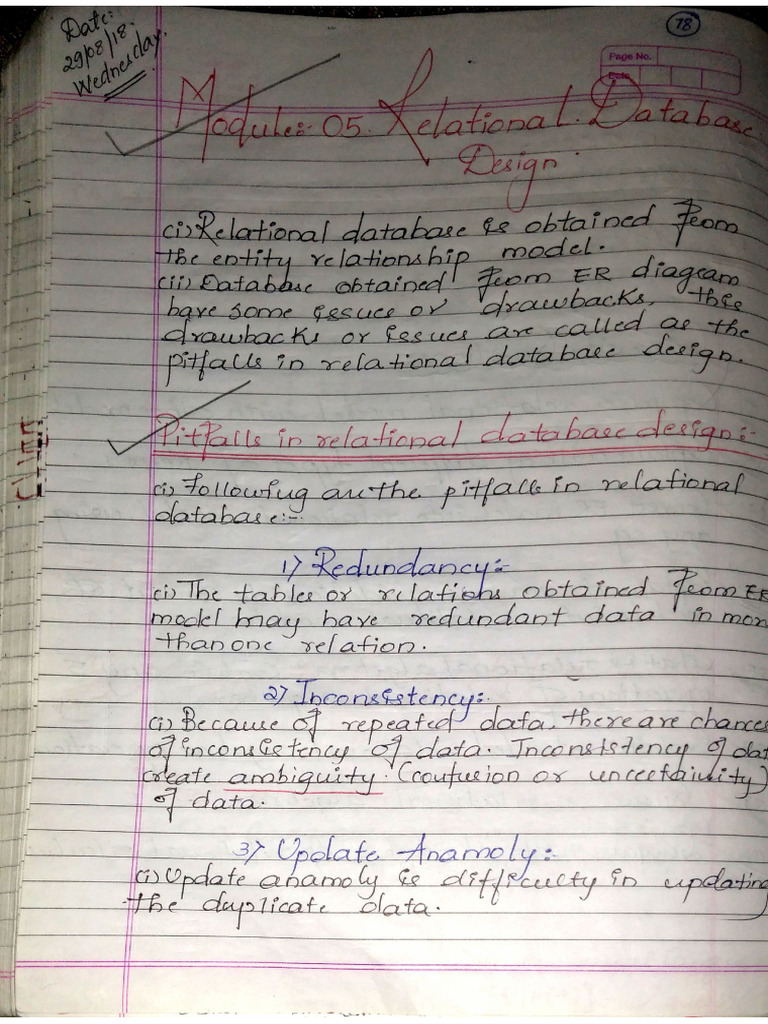 Date:
29/08/18.
Wednesday.
78
Page No.
Date
Module:- 05. Relational. Database
Design.
(i) Relational database is obtained from
the entity relationship model.
(ii) Database obtained from ER diagram
have some issues or drawbacks, this
drawbacks or issues are called as the
pitfalls in relational database design.
Pitfalls in relational database design:-
(i) Following are the pitfalls in relational
database:-
1) Redundancy:-
(i) The tables or relations obtained from ER
model may have redundant data in mor
than one relation.
2) Inconsistency:-
(i) Because of repeated data, there are chances
of inconsistency of data. Inconsistency of dat
create ambiguity. (confusion or uncertainity)
of data.
3) Update Anamoly:-
(i) Update anamoly is difficulty in updating
the duplicate data.